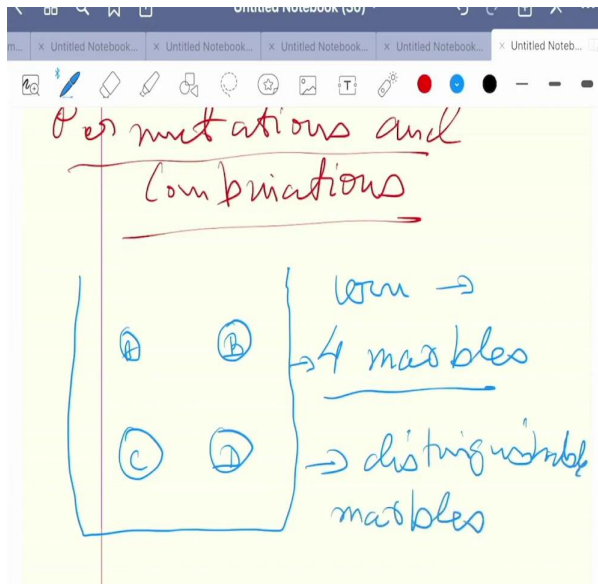 Untitled Notebook (30)
m... × Untitled Notebook... × Untitled Notebook... × Untitled Notebook... × Untitled Notebook... × Untitled Noteb...
Permutations and
Combinations
urn →
A B → 4 marbles
C D → distinguishable
marbles